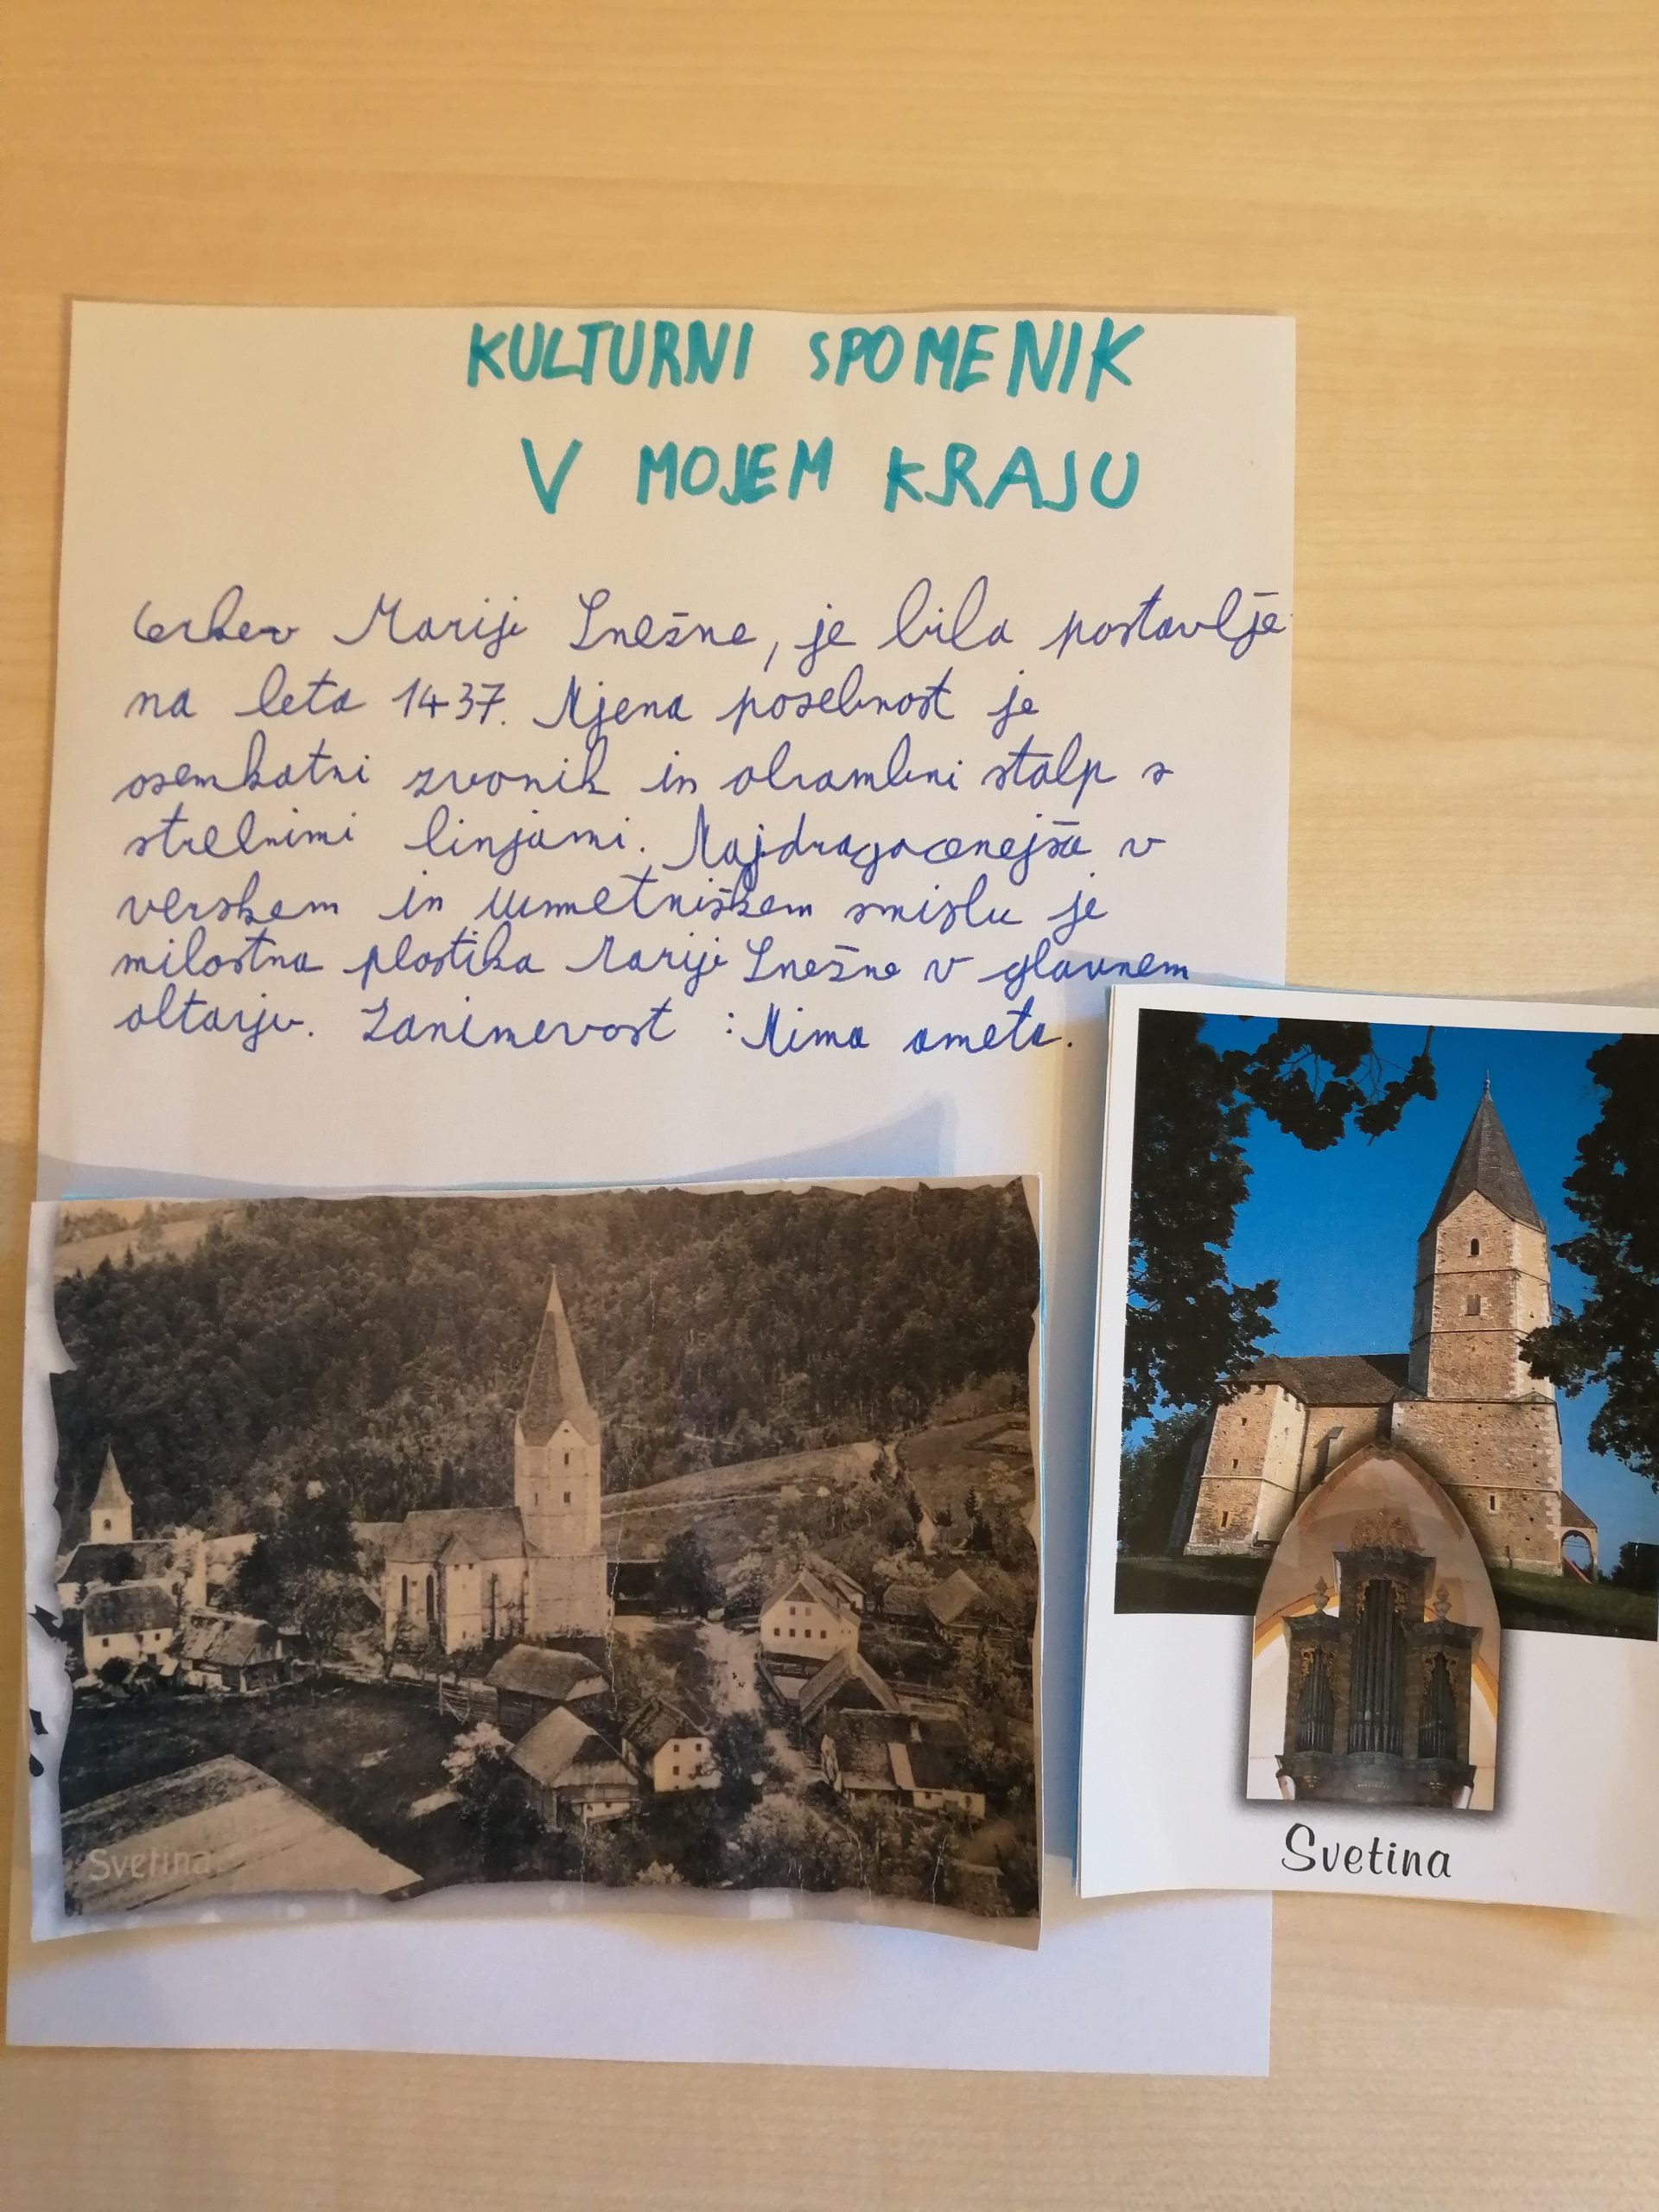 KULTURNI SPOMENIK
V MOJEM KRAJU
Cerkev Marije Snežne, je bila postavlje
na leta 1437. Njena posebnost je
osemkotni zvonik in obrambni stolp s
strelnimi linjami. Najdragocenejša v
verskem in umetniškem smislu je
milostna plastika Marije Snežne v glavnem
oltarju. Zanimevost : Nima ometa.
Svetina
Svetina